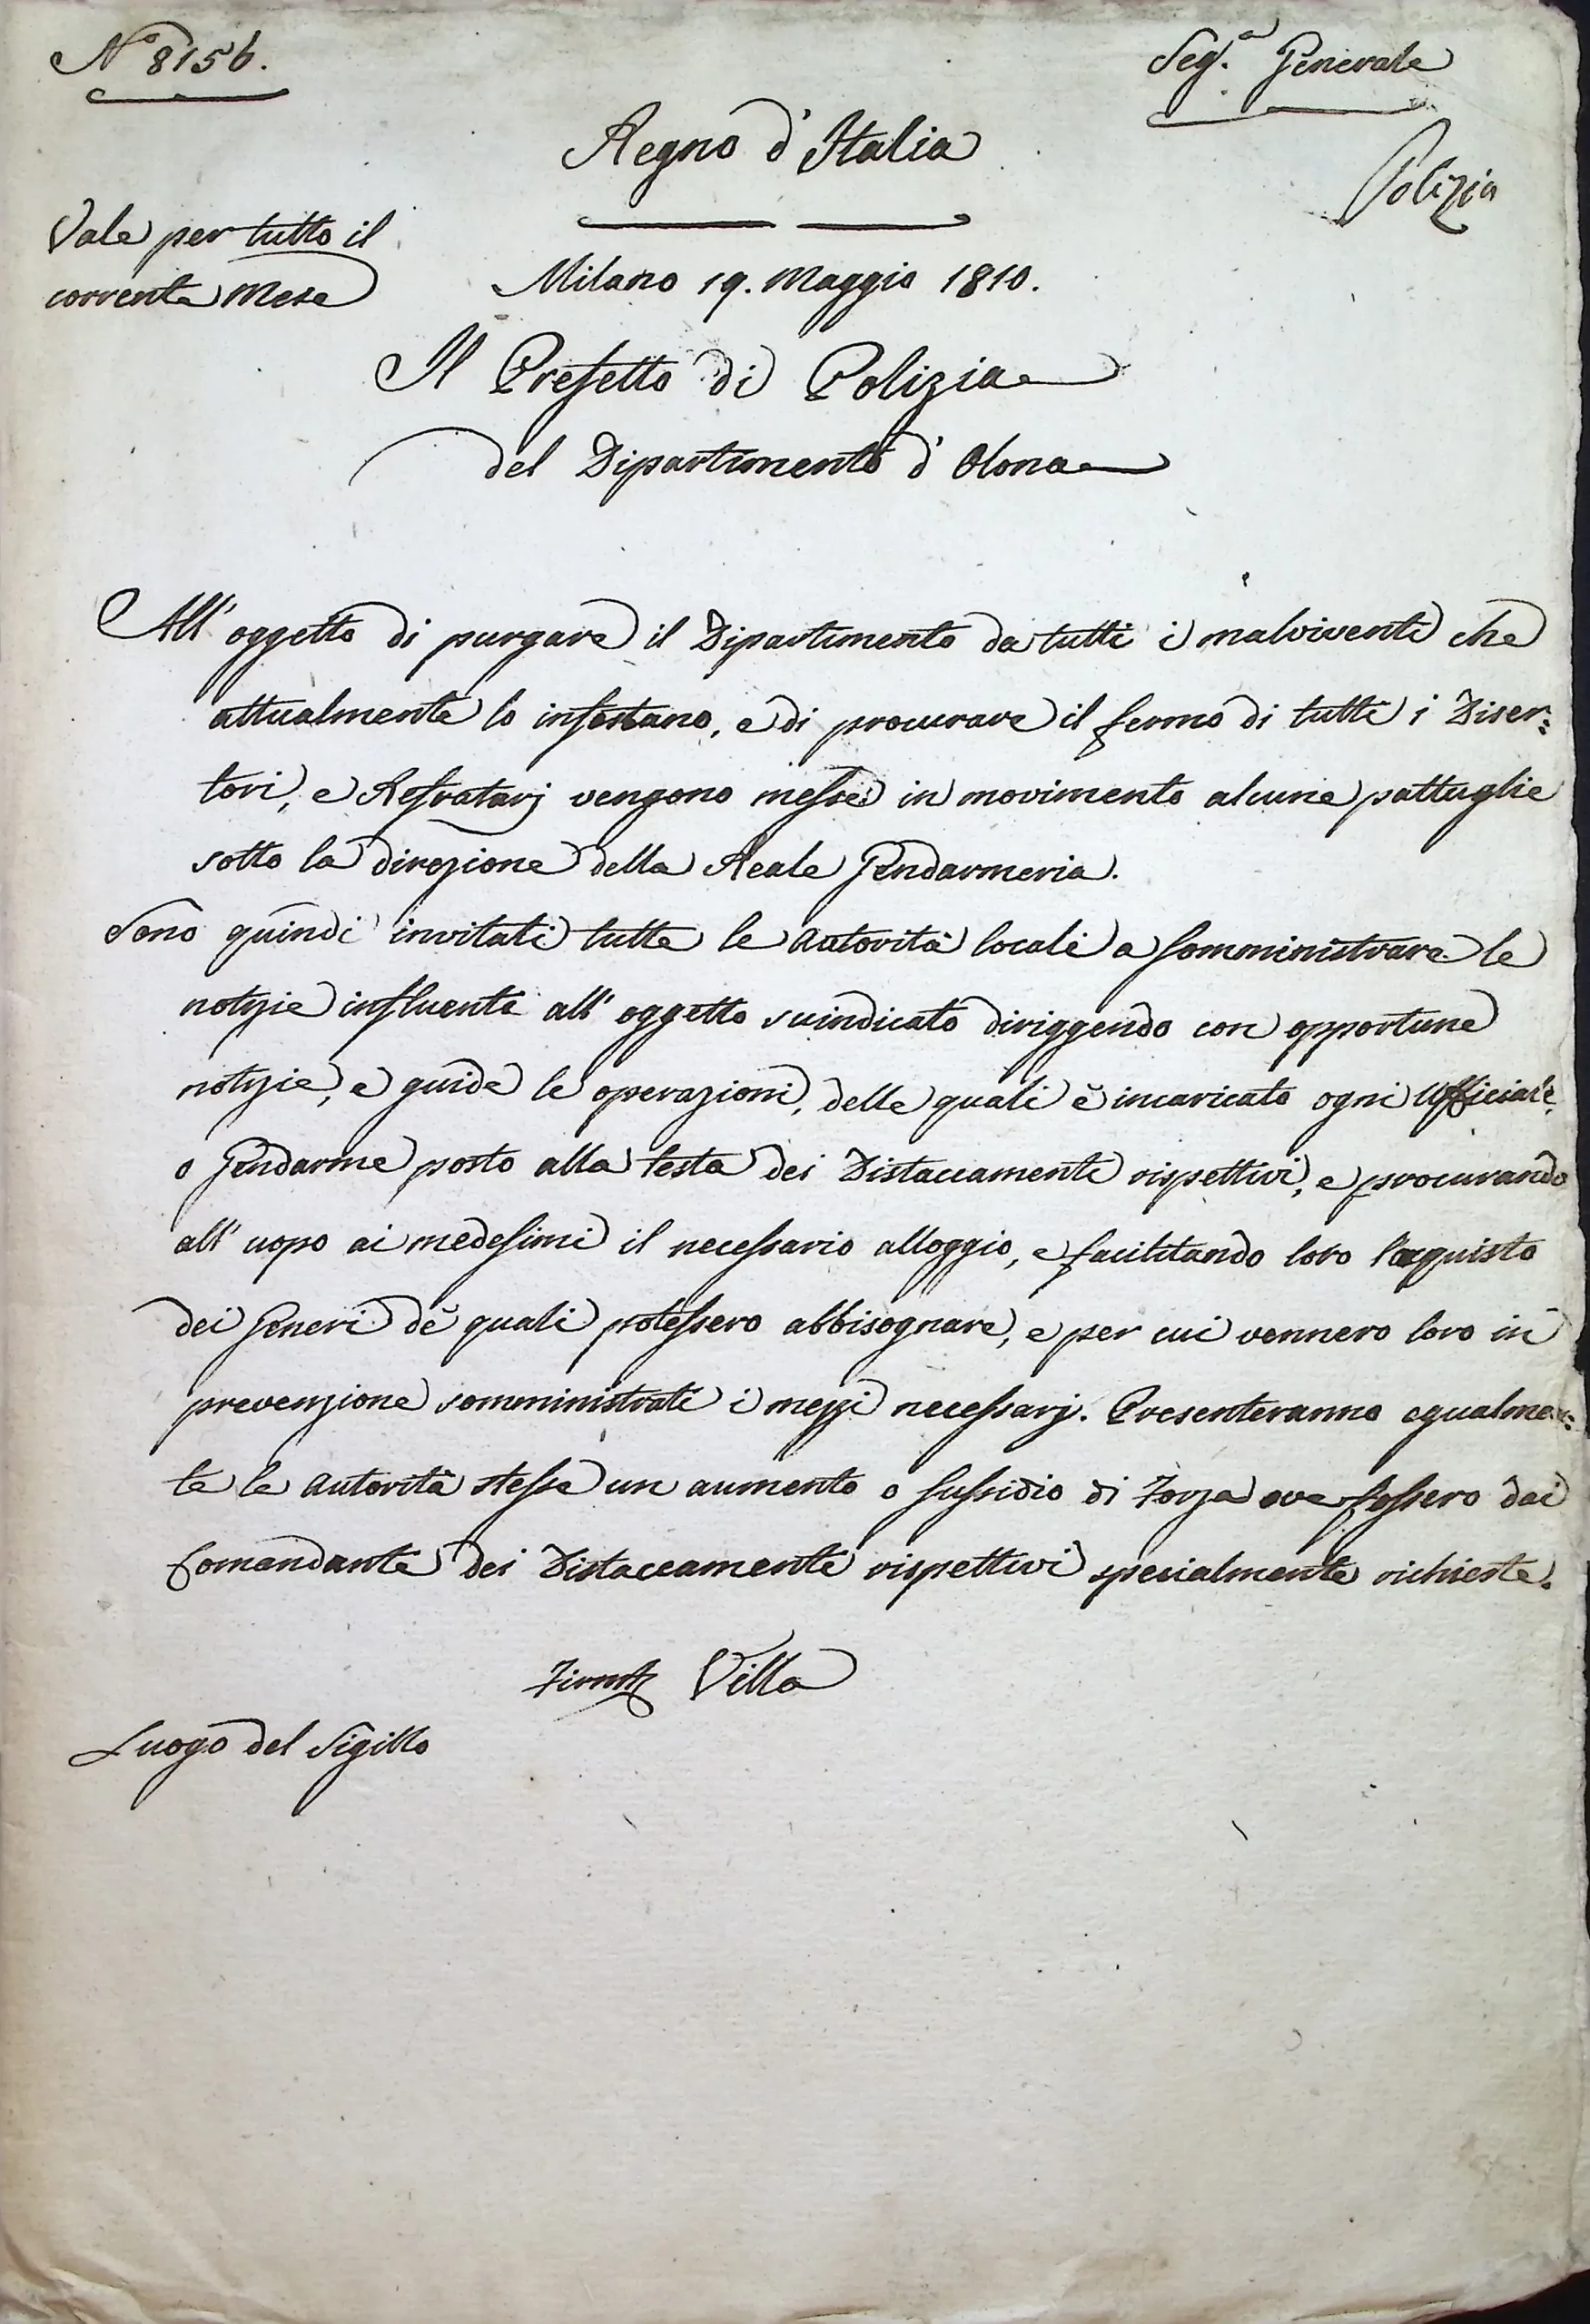 N.° 8156.
Seg.a Generale
Regno d'Italia
Polizia
Vale per tutto il
corrente Mese
Milano 19. Maggio 1810.
Il Prefetto di Polizia
del Dipartimento d'Olona
All'oggetto di purgare il Dipartimento da tutti i malviventi che
attualmente lo infestano, e di procurare il fermo di tutti i Diser=
tori, e Refratarj vengono messe in movimento alcune pattuglie
sotto la direzione della Reale Gendarmeria.
Sono quindi invitati tutte le Autorità locali a somministrare le
notizie influenti all'oggetto suindicato diriggendo con opportune
notizie, e guide le operazioni, delle quali è incaricato ogni Ufficiale,
o Gendarme posto alla testa dei Distaccamenti rispettivi, e procurando
all'uopo ai medesimi il necessario alloggio, e facilitando loro l'acquisto
dei Generi de quali potessero abbisognare, e per cui vennero loro in
prevenzione somministrati i mezzi necessarj. Presenteranno egualmen=
te le Autorità stesse un aumento o sussidio di Forza ove fossero dai
Comandante dei Distaccamenti rispettivi specialmente richieste.
Firmat. Villa
Luogo del Sigillo